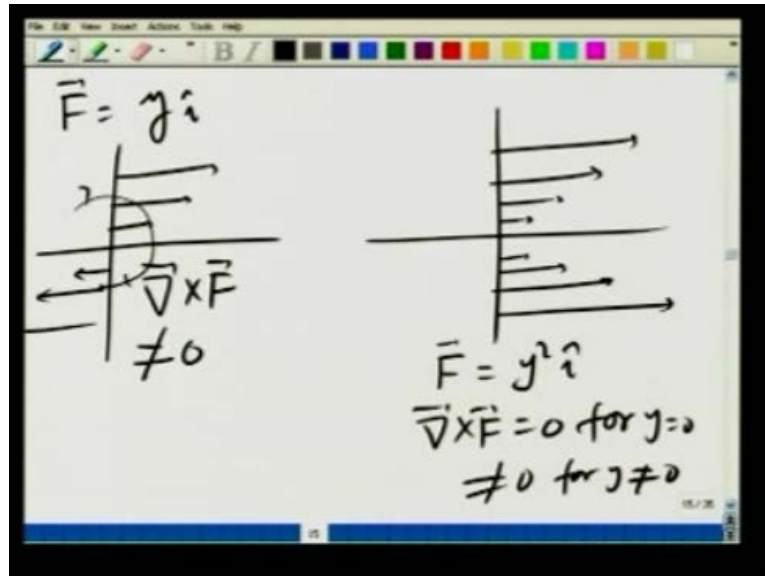 File Edit View Insert Actions Tools Help
B I
F⃗ = y î
∇⃗ × F⃗
≠ 0
F⃗ = y² î
∇⃗ × F⃗ = 0 for y=0
≠ 0 for y ≠ 0
15/35
15